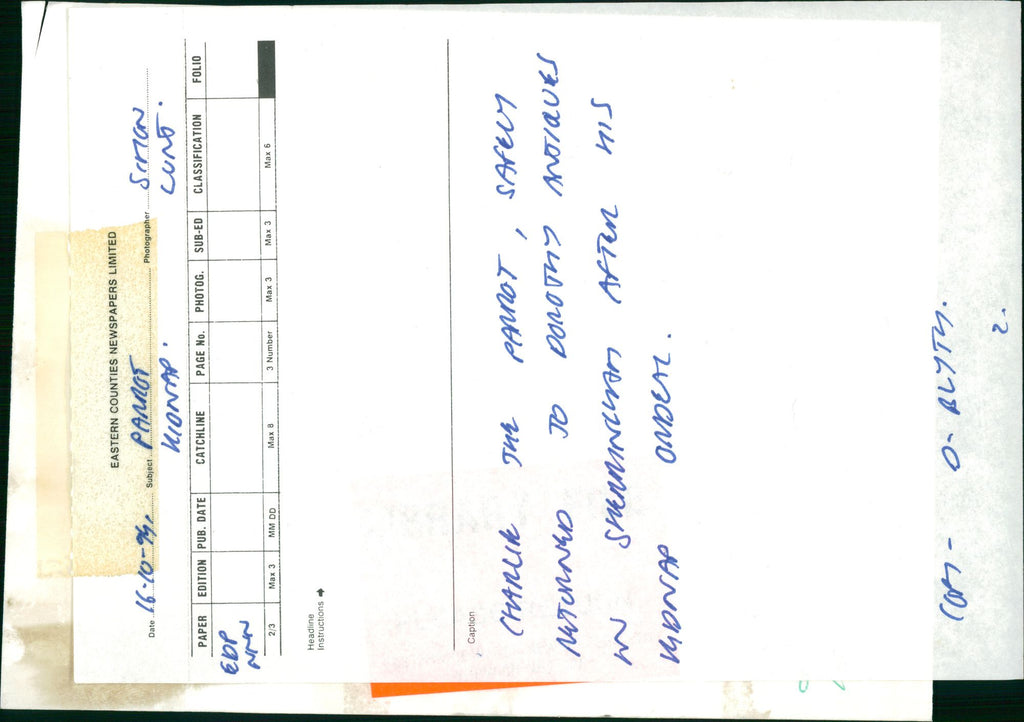 EASTERN COUNTIES NEWSPAPERS LIMITED
Date 16-10-94. Subject PARROT Photographer SIMON
KIDNAP. LUNT.
PAPER EDITION PUB. DATE CATCHLINE PAGE No. PHOTOG. SUB-ED CLASSIFICATION FOLIO
EDP
NNN
2/3 Max 3 MM DD Max 8 3 Number Max 3 Max 3 Max 6
Headline
Instructions ➔
Caption
CHARLIE THE PARROT, SAFELY
RETURNED TO DOROTHY ANTIQUES
IN SHERRINGHAM AFTER HIS
KIDNAP ORDEAL.
COPY - D. BLYTH.
2.